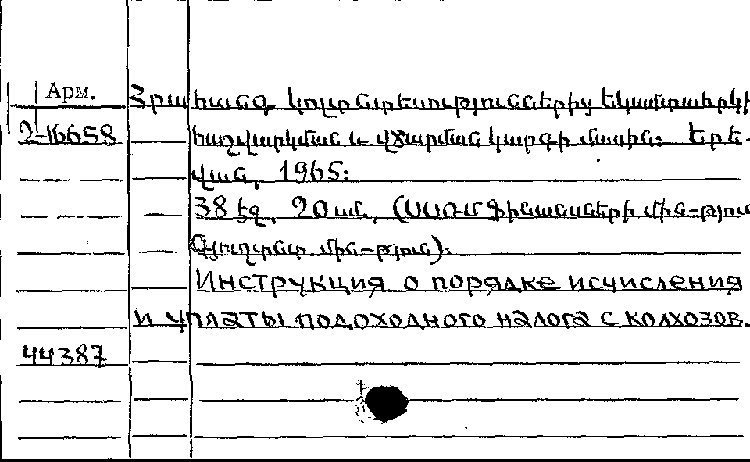 Арм.
Հրահանգ կոլտնտեսություններից եկամտահարկի
2-16658 հաշվարկման և վճարման կարգի մասին: Երե-
վան, 1965:
38 էջ, 20 ան, (ՍՍՌՄ Ֆինանսների մին-թյուն
Գյուղրնտ. մին-թյուն):
Инструкция о порядке исчисления
и уплаты подоходного налога с колхозов.
44387